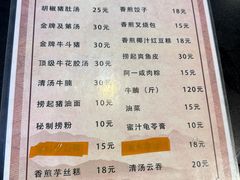 胡椒猪肚汤 25元 香煎饺子 18元
金牌及第汤 30元 香煎叉烧包 15元
金牌牛斗猪 30元 香煎椰汁红豆糕 18元
顶级牛花胶汤 30元 捞起爽鱼皮 30元
清汤牛腩 30元 阿一咸肉粽 15元
捞起猪油面 10元 牛腩（斤） 120元
秘制捞粉 10元 油菜 15元
15元 蜜汁龟苓膏 10元
香煎芋丝糕 18元 18元
清汤云吞 20元